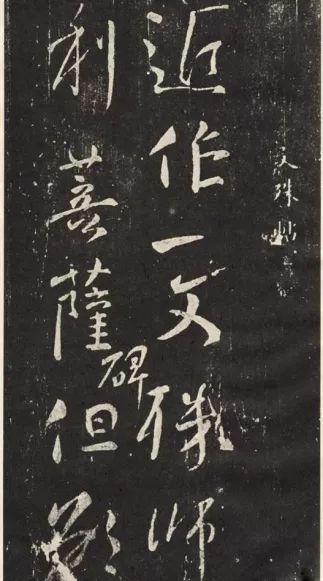 文殊帖
近作一文殊師
利菩薩碑但欲